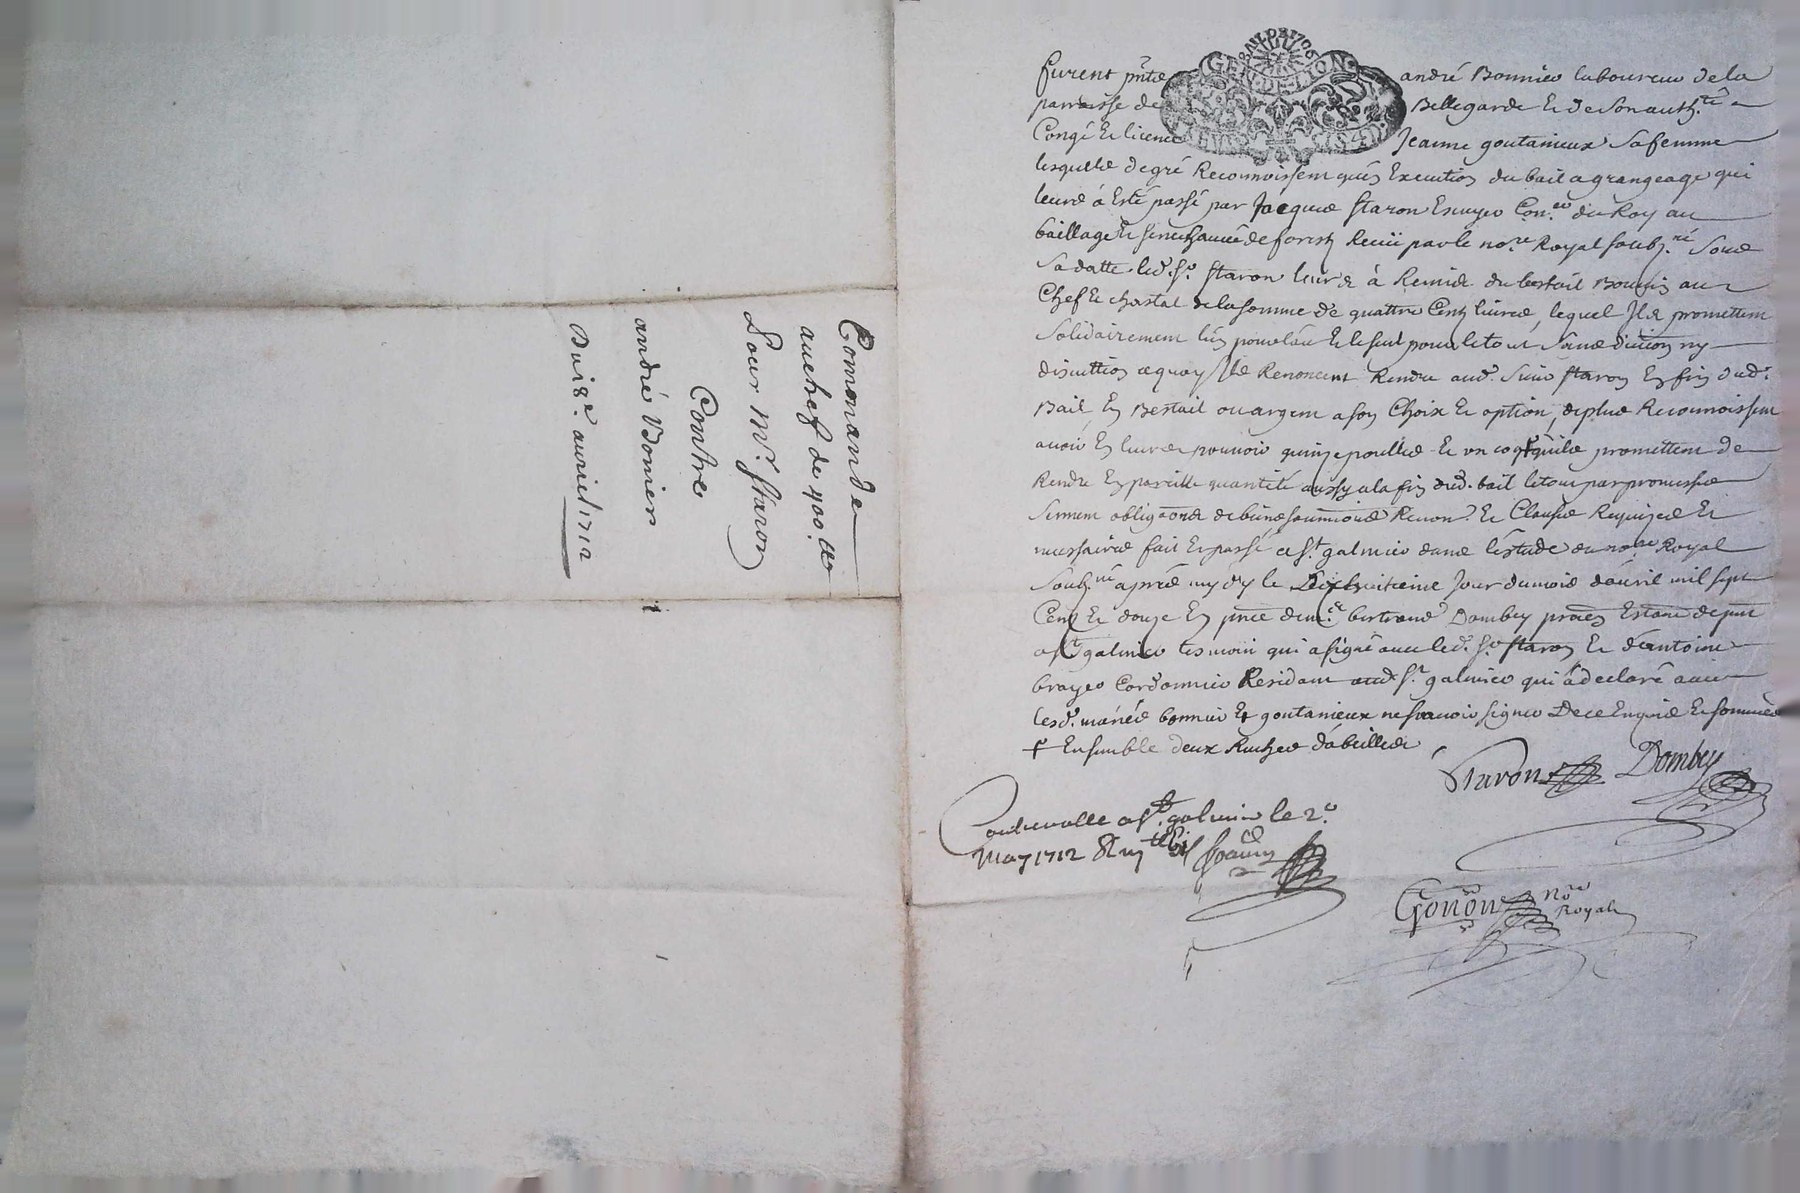 Commande
au chef de 400 ₶
Pour Mr. Staron
Contre
andré Bonnier
Du 18e. avril 1712
GEN DE LION
furent pnts andré Bonnier laboureur de la
parroisse de Bellegarde et de son authté
Congé et licence Jeanne goutanieux sa femme
lesquels de gré Reconnoissent qu'en Execution du bail a grangeage qui
leurs à Esté passé par Jacques Staron Escuyer Con.er du Roy au
baillage et senechaucée de forest Receü par le no.re Royal soubz.né Sous
Sa datte led. Sr. Staron leurs à Remis du bestail Bouvin au
Chef et chastal de la somme de quattre Cent livres, lequel Ils promettent
solidairement l'un pour l'autre et le seul pour le tout sans division ny
discution a quoy Ils Renoncent Rendre aud. Sieur Staron En fin dud.
Bail En Bestail ou argent a son Choix et option, de plus Reconnoissent
avoir En leurs pouvoir quinze poulles et un coq + qu'ils promettent de
Rendre En pareille quantité aussy a la fin dud. bail le tout par promesses
serment obligaons de biens soumions Renon.ns Et Clauses Requises Et
necessaires fait Et passé a St. galmier dans l'estude du no.re Royal
Soubz.né aprés mydy le Dixhuitieme Jour du mois d'avril mil sept
Cent Et douze En pnce de m.e bertrand Dombey praēn Estant de pnt
a St galmier tesmoin qui a signé avec led. Sr Staron Et d'antoine
brayer Cordonnier Residant aud. St. galmier qui a declaré avec
lesd. mariés bonnier Et goutanieux ne sçavoir signer De ce Enquis Et sommés
+ Ensemble deux Ruches d'abeilles
Staron Dombey
Controolle a St. galmier le 2e
May 1712
Gonon no.re
Royal